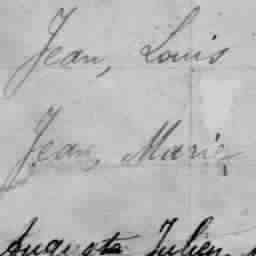 Jean, Louis
Jean, Marie
Auguste Julien